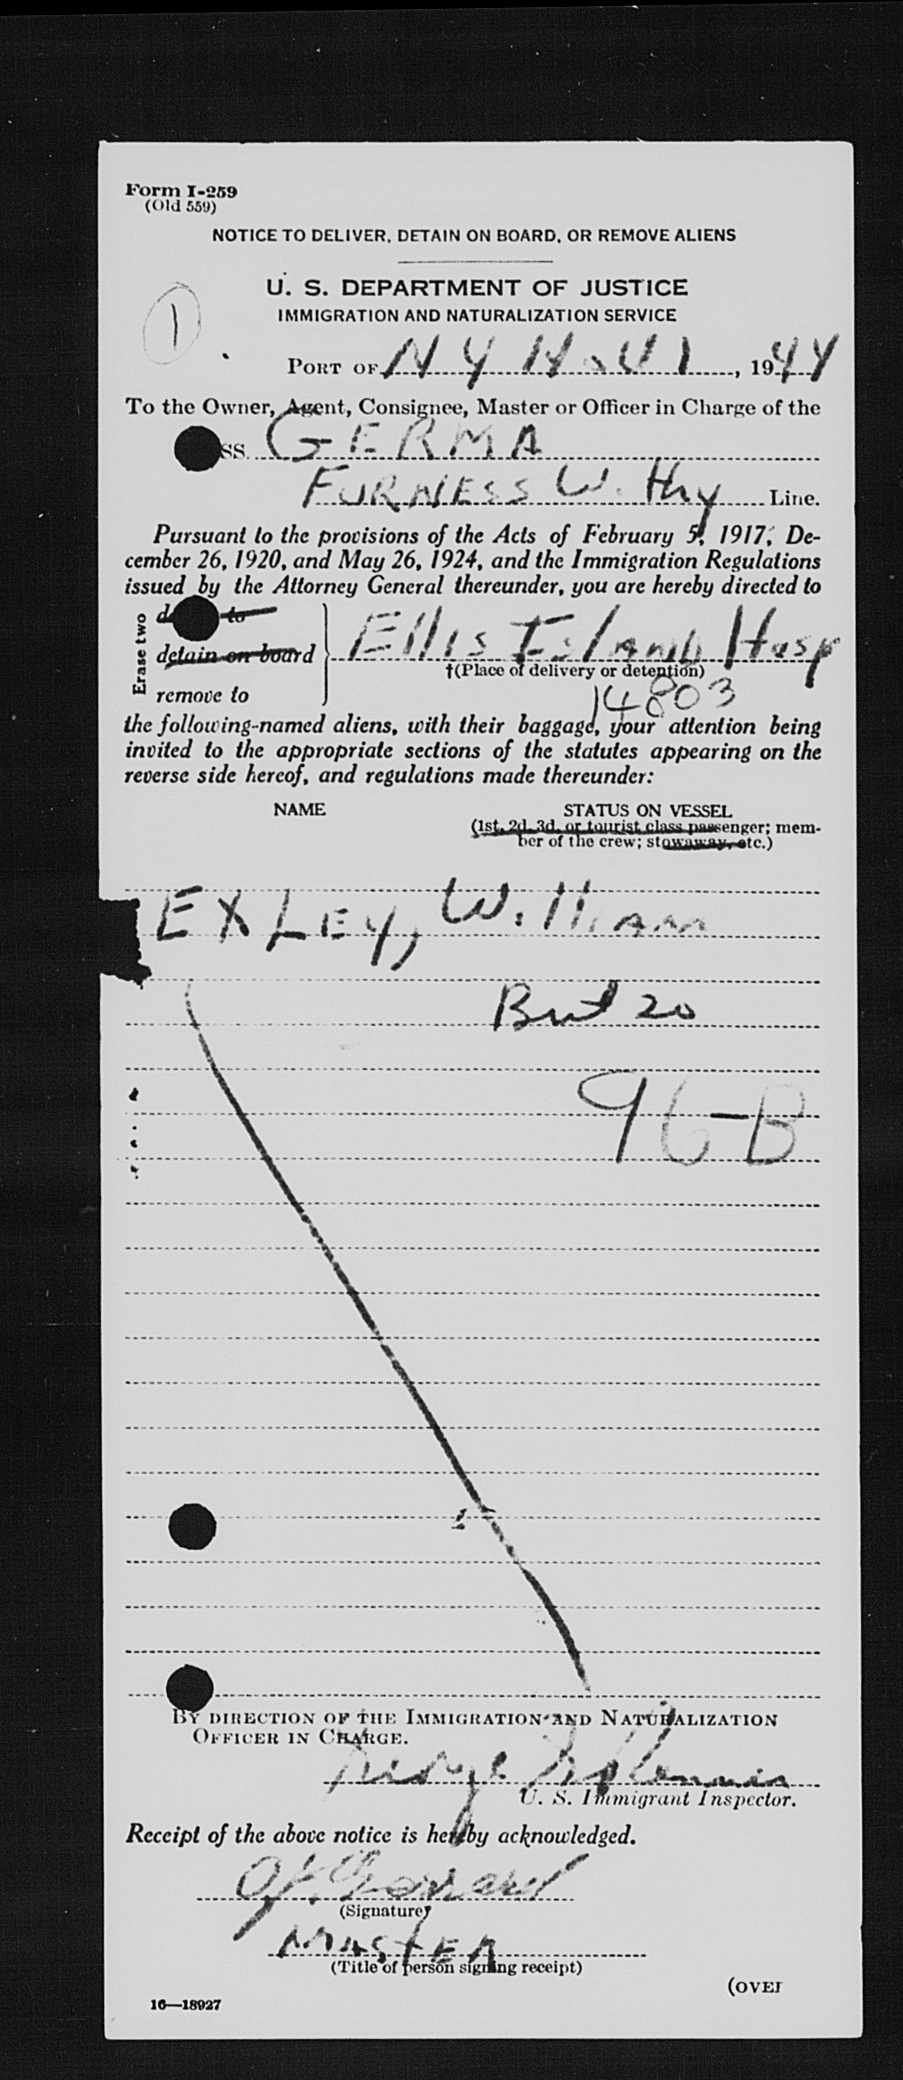 Form I-259
(Old 559)
NOTICE TO DELIVER, DETAIN ON BOARD, OR REMOVE ALIENS
U. S. DEPARTMENT OF JUSTICE
IMMIGRATION AND NATURALIZATION SERVICE
1
PORT OF N Y , 1944
To the Owner, Agent, Consignee, Master or Officer in Charge of the
SS. GERMA
FURNESS Withy Line.
Pursuant to the provisions of the Acts of February 5, 1917, De-
cember 26, 1920, and May 26, 1924, and the Immigration Regulations
issued by the Attorney General thereunder, you are hereby directed to
Erase two
to
detain on board
Ellis Island Hosp
†(Place of delivery or detention)
remove to
14803
the following-named aliens, with their baggage, your attention being
invited to the appropriate sections of the statutes appearing on the
reverse side hereof, and regulations made thereunder:
NAME STATUS ON VESSEL
(1st, 2d, 3d, or tourist class passenger; mem-
ber of the crew; stowaway, etc.)
EXLEY, William
20
96-B
BY DIRECTION OF THE IMMIGRATION AND NATURALIZATION
OFFICER IN CHARGE.
George
U. S. Immigrant Inspector.
Receipt of the above notice is hereby acknowledged.
(Signature)
MASTER
(Title of person signing receipt)
(OVER
16—18927